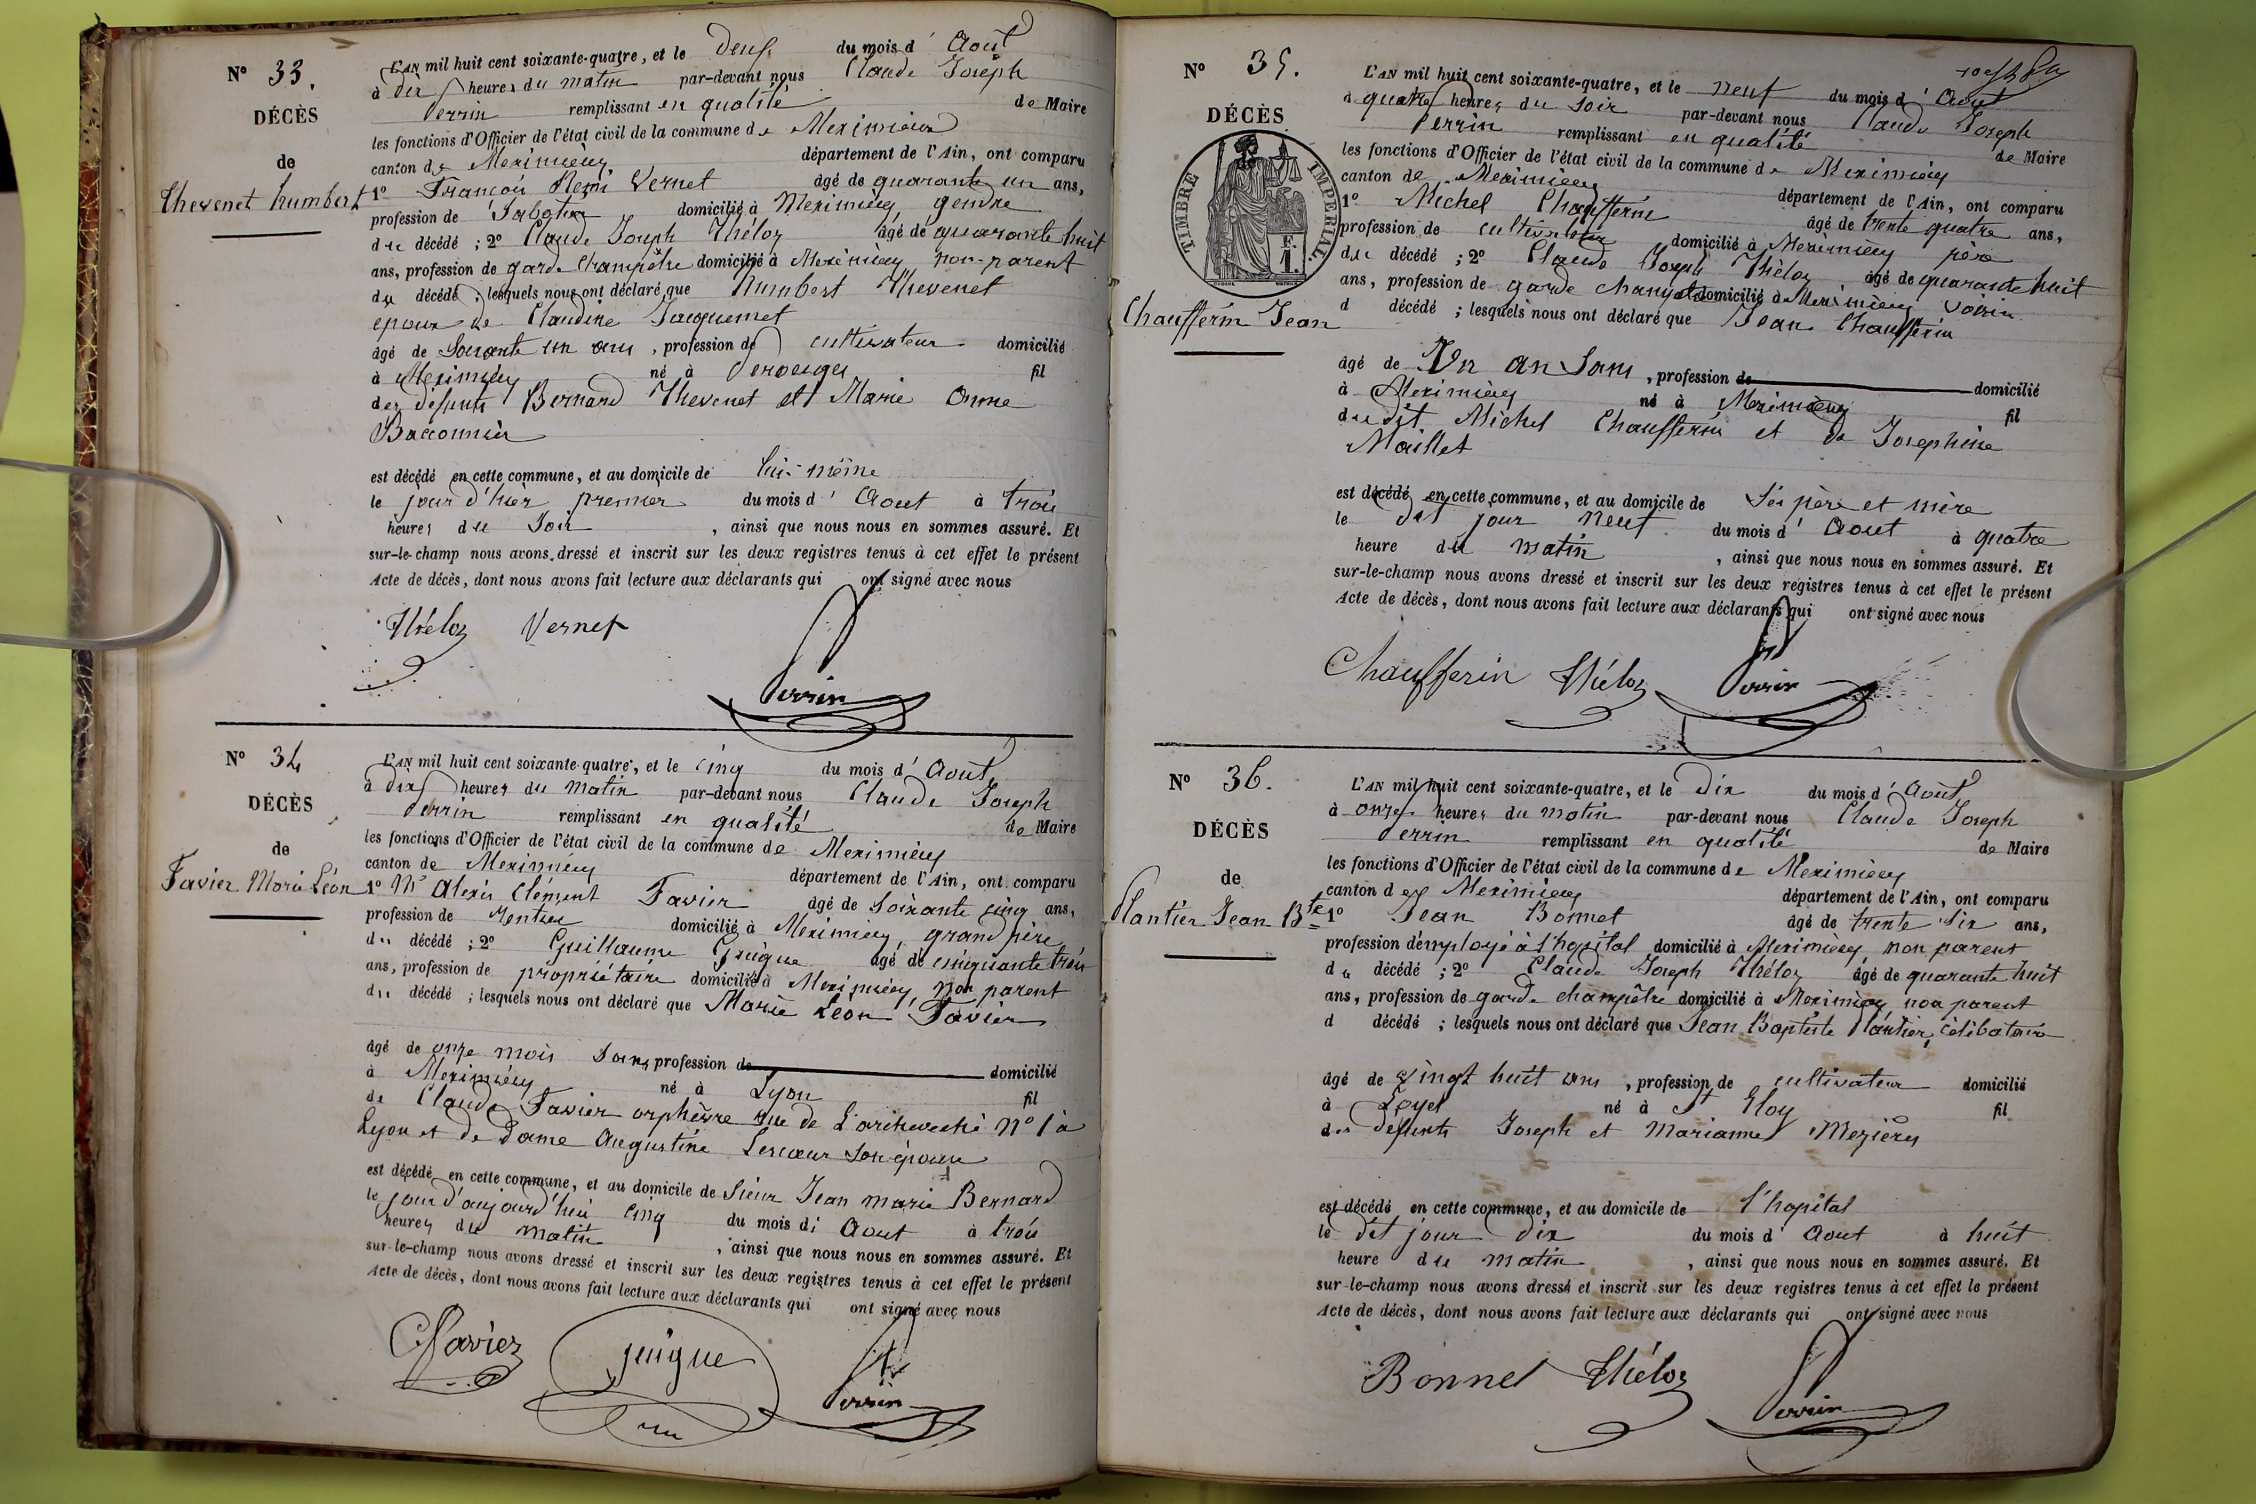 N° 33.
DÉCÈS
de
Thevenet humbert
L'AN mil huit cent soixante-quatre, et le deux du mois d' Août
à dix heures du matin par-devant nous Claude Joseph
Perrin remplissant en qualité de Maire
les fonctions d'Officier de l'état civil de la commune de Meximieux
canton de Meximieux département de l'Ain, ont comparu
1° François Remi Vernet âgé de quarante un ans,
profession de Sabotier domicilié à Meximieux gendre
du décédé ; 2° Claude Joseph Théloz âgé de quarante huit
ans, profession de garde Champêtre domicilié à Meximieux non-parent
du décédé ; lesquels nous ont déclaré que Humbert Thevenet
epoux de Claudine Jacquemet
âgé de Soixante un ans, profession de cultivateur domicilié
à Meximieux né à Perouges fil
des défunts Bernard Thevenet et Marie Anne
Baconnier
est décédé en cette commune, et au domicile de lui-même
le jour d'hier premier du mois d' Aout à trois
heures du Soir, ainsi que nous nous en sommes assuré. Et
sur-le-champ nous avons dressé et inscrit sur les deux registres tenus à cet effet le présent
Acte de décès, dont nous avons fait lecture aux déclarants qui ont signé avec nous
Théloz Vernet
Perrin
N° 34
DÉCÈS
de
Favier Marie Léon
L'AN mil huit cent soixante-quatre, et le cinq du mois d' Août
à dix heures du matin par-devant nous Claude Joseph
Perrin remplissant en qualité de Maire
les fonctions d'Officier de l'état civil de la commune de Meximieux
canton de Meximieux département de l'Ain, ont comparu
1° Mr Alexis Clément Favier âgé de Soixante cinq ans,
profession de Rentier domicilié à Meximieux, grand père
du décédé ; 2° Guillaume Guigue âgé de cinquante trois
ans, profession de propriétaire domicilié à Meximieux, non parent
du décédé ; lesquels nous ont déclaré que Marie Léon Favier
âgé de onze mois Sans profession de domicilié
à Meximieux né à Lyon fil
de Claude Favier orphèvre rue de L'archeveché N° 1 à
Lyon et de Dame Augustine Lescoeur Son épouse
est décédé en cette commune, et au domicile de Sieur Jean marie Bernard
le jour d'aujourd'hui cinq du mois d' Aout à trois
heures du matin, ainsi que nous nous en sommes assuré. Et
sur-le-champ nous avons dressé et inscrit sur les deux registres tenus à cet effet le présent
Acte de décès, dont nous avons fait lecture aux déclarants qui ont signé avec nous
Favier guigue
Perrin
N° 35.
DÉCÈS
TIMBRE IMPERIAL
Chaufferin Jean
L'AN mil huit cent soixante-quatre, et le neuf du mois d' Aout
à quatre heures du Soir par-devant nous Claude Joseph
Perrin remplissant en qualité de Maire
les fonctions d'Officier de l'état civil de la commune de Meximieux
canton de Meximieux département de l'Ain, ont comparu
1° Michel Chaufferin âgé de trente quatre ans,
profession de cultivateur domicilié à Meximieux père
du décédé ; 2° Claude Joseph Théloz âgé de quarante huit
ans, profession de garde champêtre domicilié à Meximieux Voisin
d décédé ; lesquels nous ont déclaré que Jean Chaufferin
âgé de Un an Sans, profession de domicilié
à Meximieux né à Meximieux fil
du dit Michel Chaufferin et de Josephine
Maillet
est décédé en cette commune, et au domicile de Ses père et mère
le dit jour neuf du mois d' Aout à quatre
heure du matin, ainsi que nous nous en sommes assuré. Et
sur-le-champ nous avons dressé et inscrit sur les deux registres tenus à cet effet le présent
Acte de décès, dont nous avons fait lecture aux déclarants qui ont signé avec nous
Chaufferin Théloz Perrin
N° 36.
DÉCÈS
de
Plantier Jean Bte
L'AN mil huit cent soixante-quatre, et le Dix du mois d' Août
à onze heures du matin par-devant nous Claude Joseph
Perrin remplissant en qualité de Maire
les fonctions d'Officier de l'état civil de la commune de Meximieux
canton de Meximieux département de l'Ain, ont comparu
1° Jean Bonnet âgé de trente Six ans,
profession d'employé à l'hopital domicilié à Meximieux non parent
du décédé ; 2° Claude Joseph Théloz âgé de quarante huit
ans, profession de garde champêtre domicilié à Meximieux, non parent
d décédé ; lesquels nous ont déclaré que Jean Baptiste Plantier, célibataire
âgé de vingt huit ans, profession de cultivateur domicilié
à Loyet né à St Eloy fil
des défunts Joseph et Marianne Mezières
est décédé en cette commune, et au domicile de l'hopital
le dit jour dix du mois d' Aout à huit
heure du matin, ainsi que nous nous en sommes assuré. Et
sur-le-champ nous avons dressé et inscrit sur les deux registres tenus à cet effet le présent
Acte de décès, dont nous avons fait lecture aux déclarants qui ont signé avec nous
Bonnet Théloz
Perrin